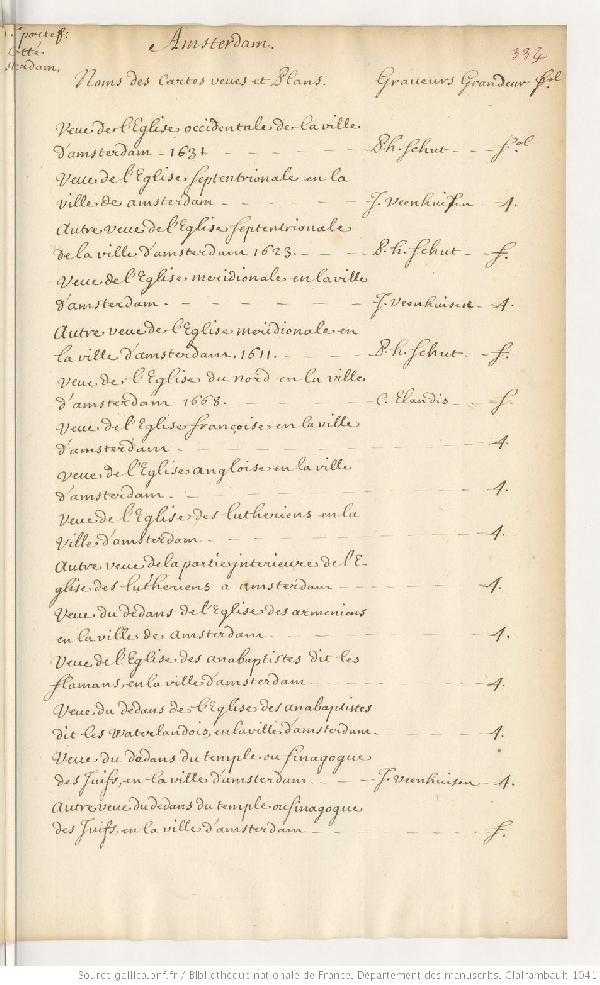 portef:
Amsterdam.
334
Noms des Cartes veues et Plans. Graveurs Grandeur fol
Veue de l'Eglise occidentale de la ville
d'amsterdam - 1631 - - - - - P. h. schut - - fol
Veue de l'Eglise septentrionale en la
ville de amsterdam - - - - - J. Veenhuisen - 4.
Autre veue de l'Eglise septentrionale
de la ville d'amsterdam 1623. - - - P. h. schut - f.
Veue de l'Eglise meridionale en la ville
d'amsterdam - - - - - - J. Veenhuisen - 4.
Autre veue de l'Eglise meridionale en
la ville d'amsterdam, 1611. - - - - P. h. schut - f.
Veue de l'Eglise du nord en la ville
d'amsterdam 1668. - - - - - C. Elandis - - f.
Veue de l'Eglise françoise en la ville
d'amsterdam - - - - - - - - 4.
Veue de l'Eglise angloise en la ville
d'amsterdam - - - - - - - - 4.
Veue de l'Eglise des lutheriens en la
ville d'amsterdam - - - - - - - 4.
Autre veue de la partie interieure de l'E-
glise des lutheriens a amsterdam - - - - 4.
Veue du dedans de l'Eglise des armeniens
en la ville de amsterdam. - - - - - 4.
Veue de l'Eglise des anabaptistes dit les
flamans, en la ville d'amsterdam - - - - 4.
Veue du dedans de l'Eglise des anabaptistes
dit les Waterlandois, en la ville d'amsterdam. - - - 4.
Veue du dedans du temple ou sinagogue
des Juifs, en la ville d'amsterdam - - J. Veenhuisen - 4.
Autre veue du dedans du temple ou sinagogue
des Juifs, en la ville d'amsterdam - - - - - f.
Source gallica.bnf.fr / Bibliothèque nationale de France. Département des manuscrits. Clairambault 1041